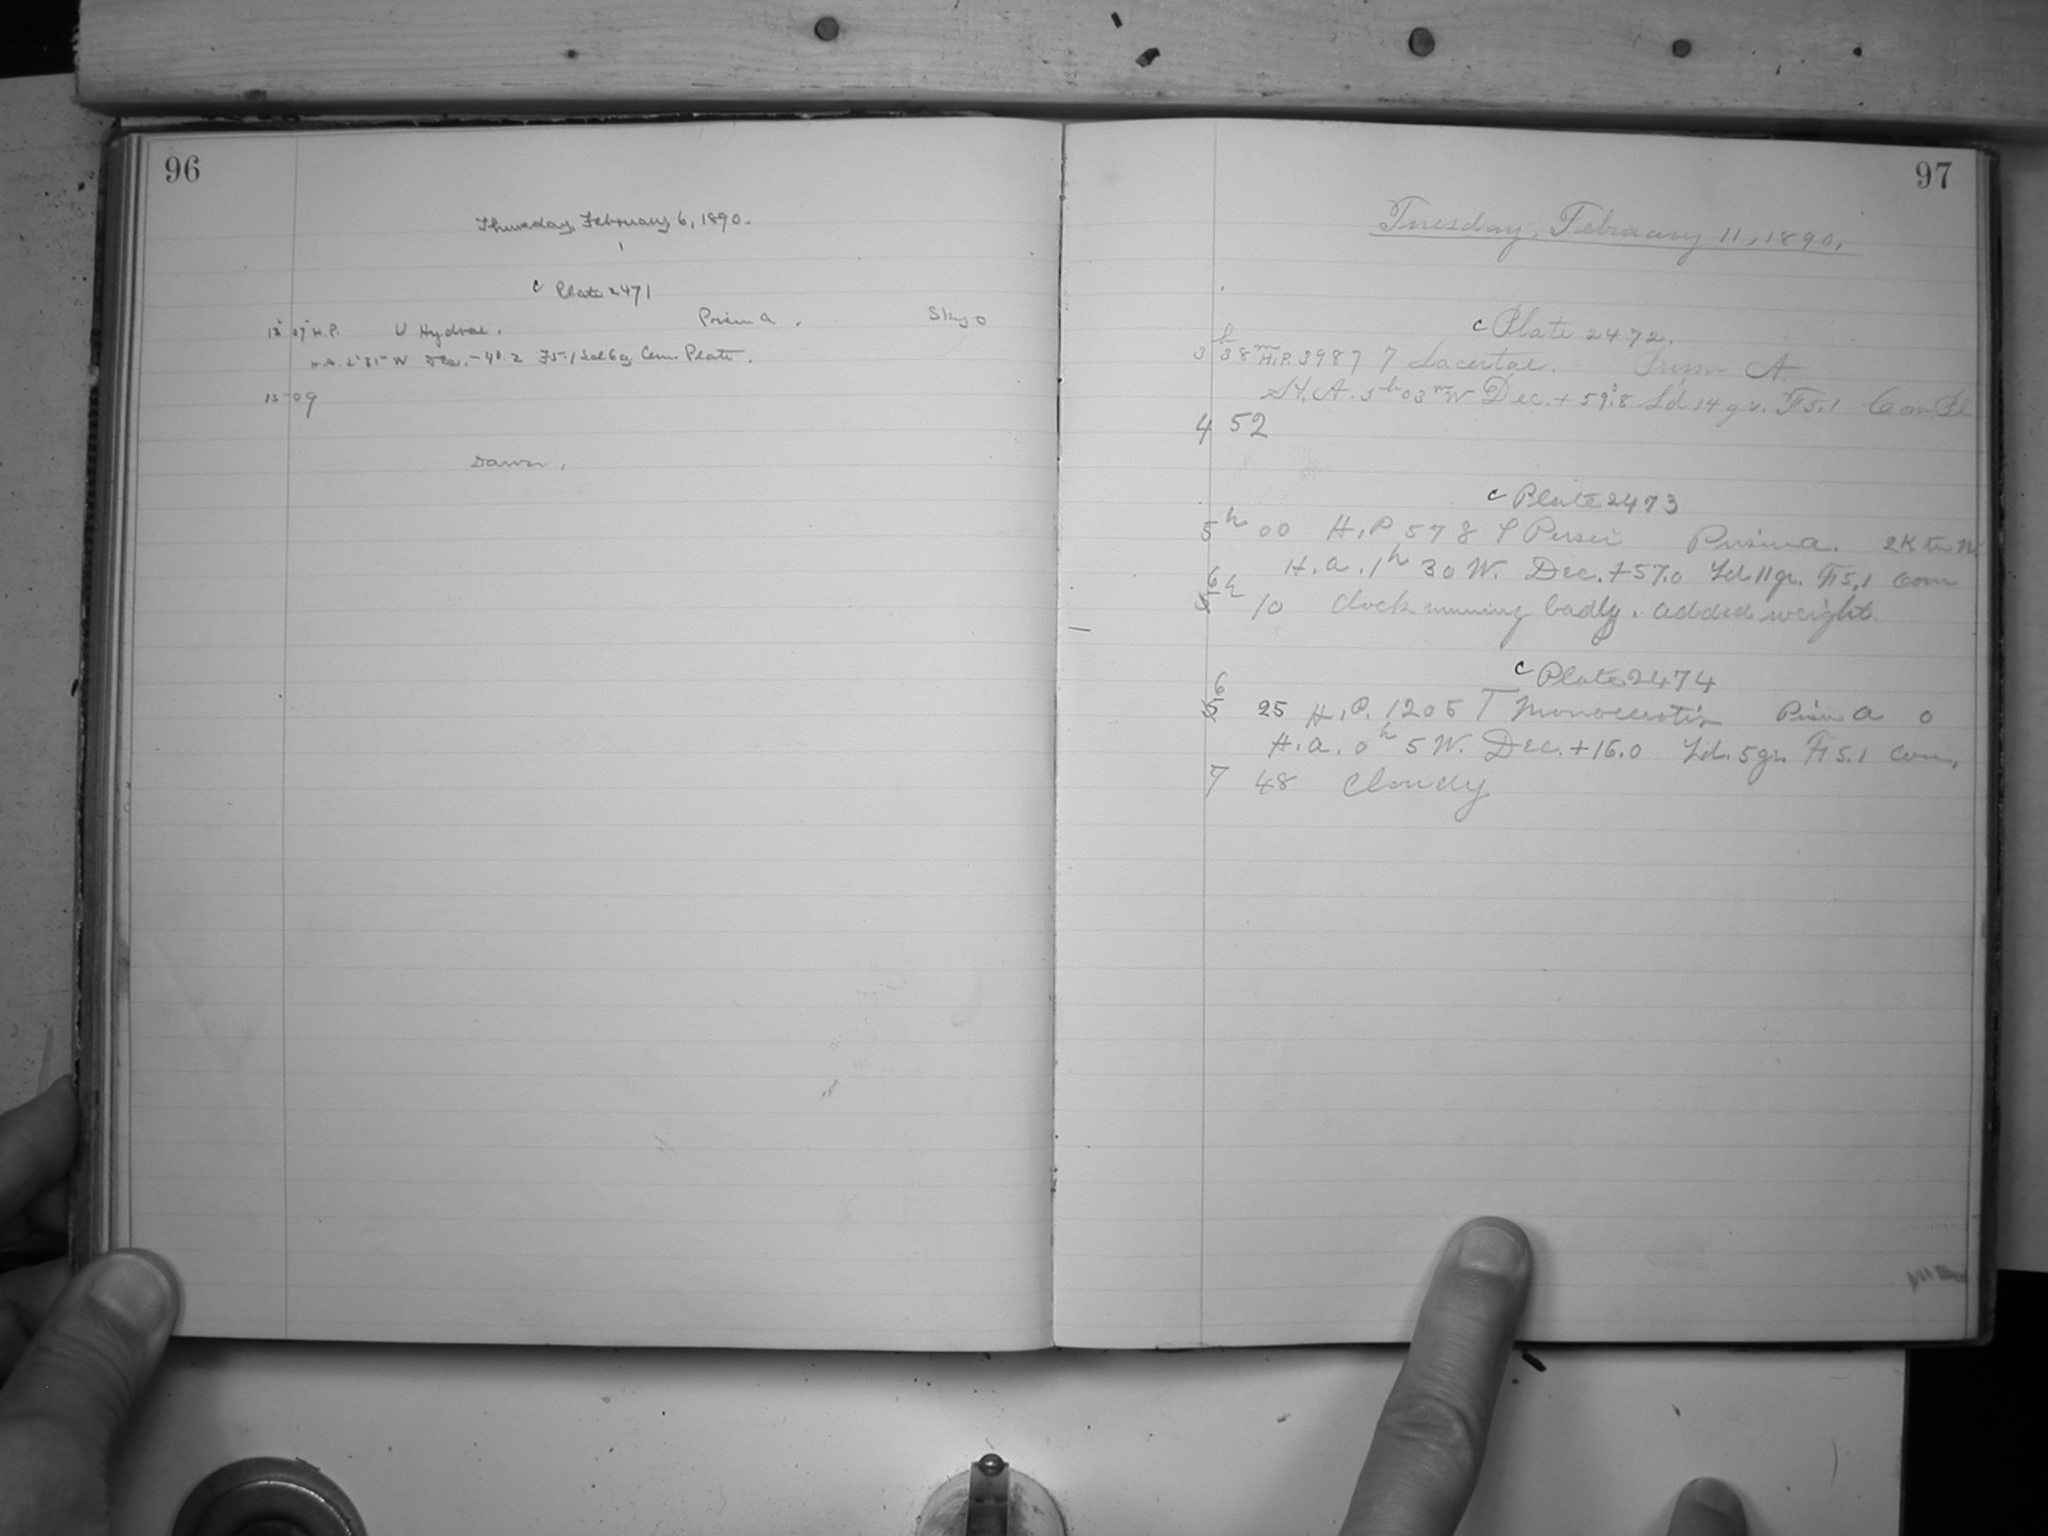 96
Thursday, February 6, 1890.
c Plate 2471
13 07 H.P. U Hydrae. Prism A. Sky 0
H.A. 2 31 W Dec. -40.2 F5.1 Sd 6g. Cem. Plate.
15 09
Dawn.
97
Tuesday, February 11, 1890.
c Plate 2472.
3h 38m H.P. 3987 7 Lacertae. Prism A.
H.A. 5h 03m W Dec. + 59.8 Ld 14 gr. F5.1 Com Pl
4 52
c Plate 2473
5h 00 H.P. 578 Persei Prism a. 2K to N
H.a. 1h 30 W. Dec. +57.0 Ld 11 gr. F5.1 Com
6h 10 Clock running badly. added weight.
c Plate 2474
6 25 H.P. 1205 T Monocerotis Prism a 0
H.a. 0h 5 W. Dec. +16.0 Ld. 5 gr. F5.1 Com.
7 48 Cloudy